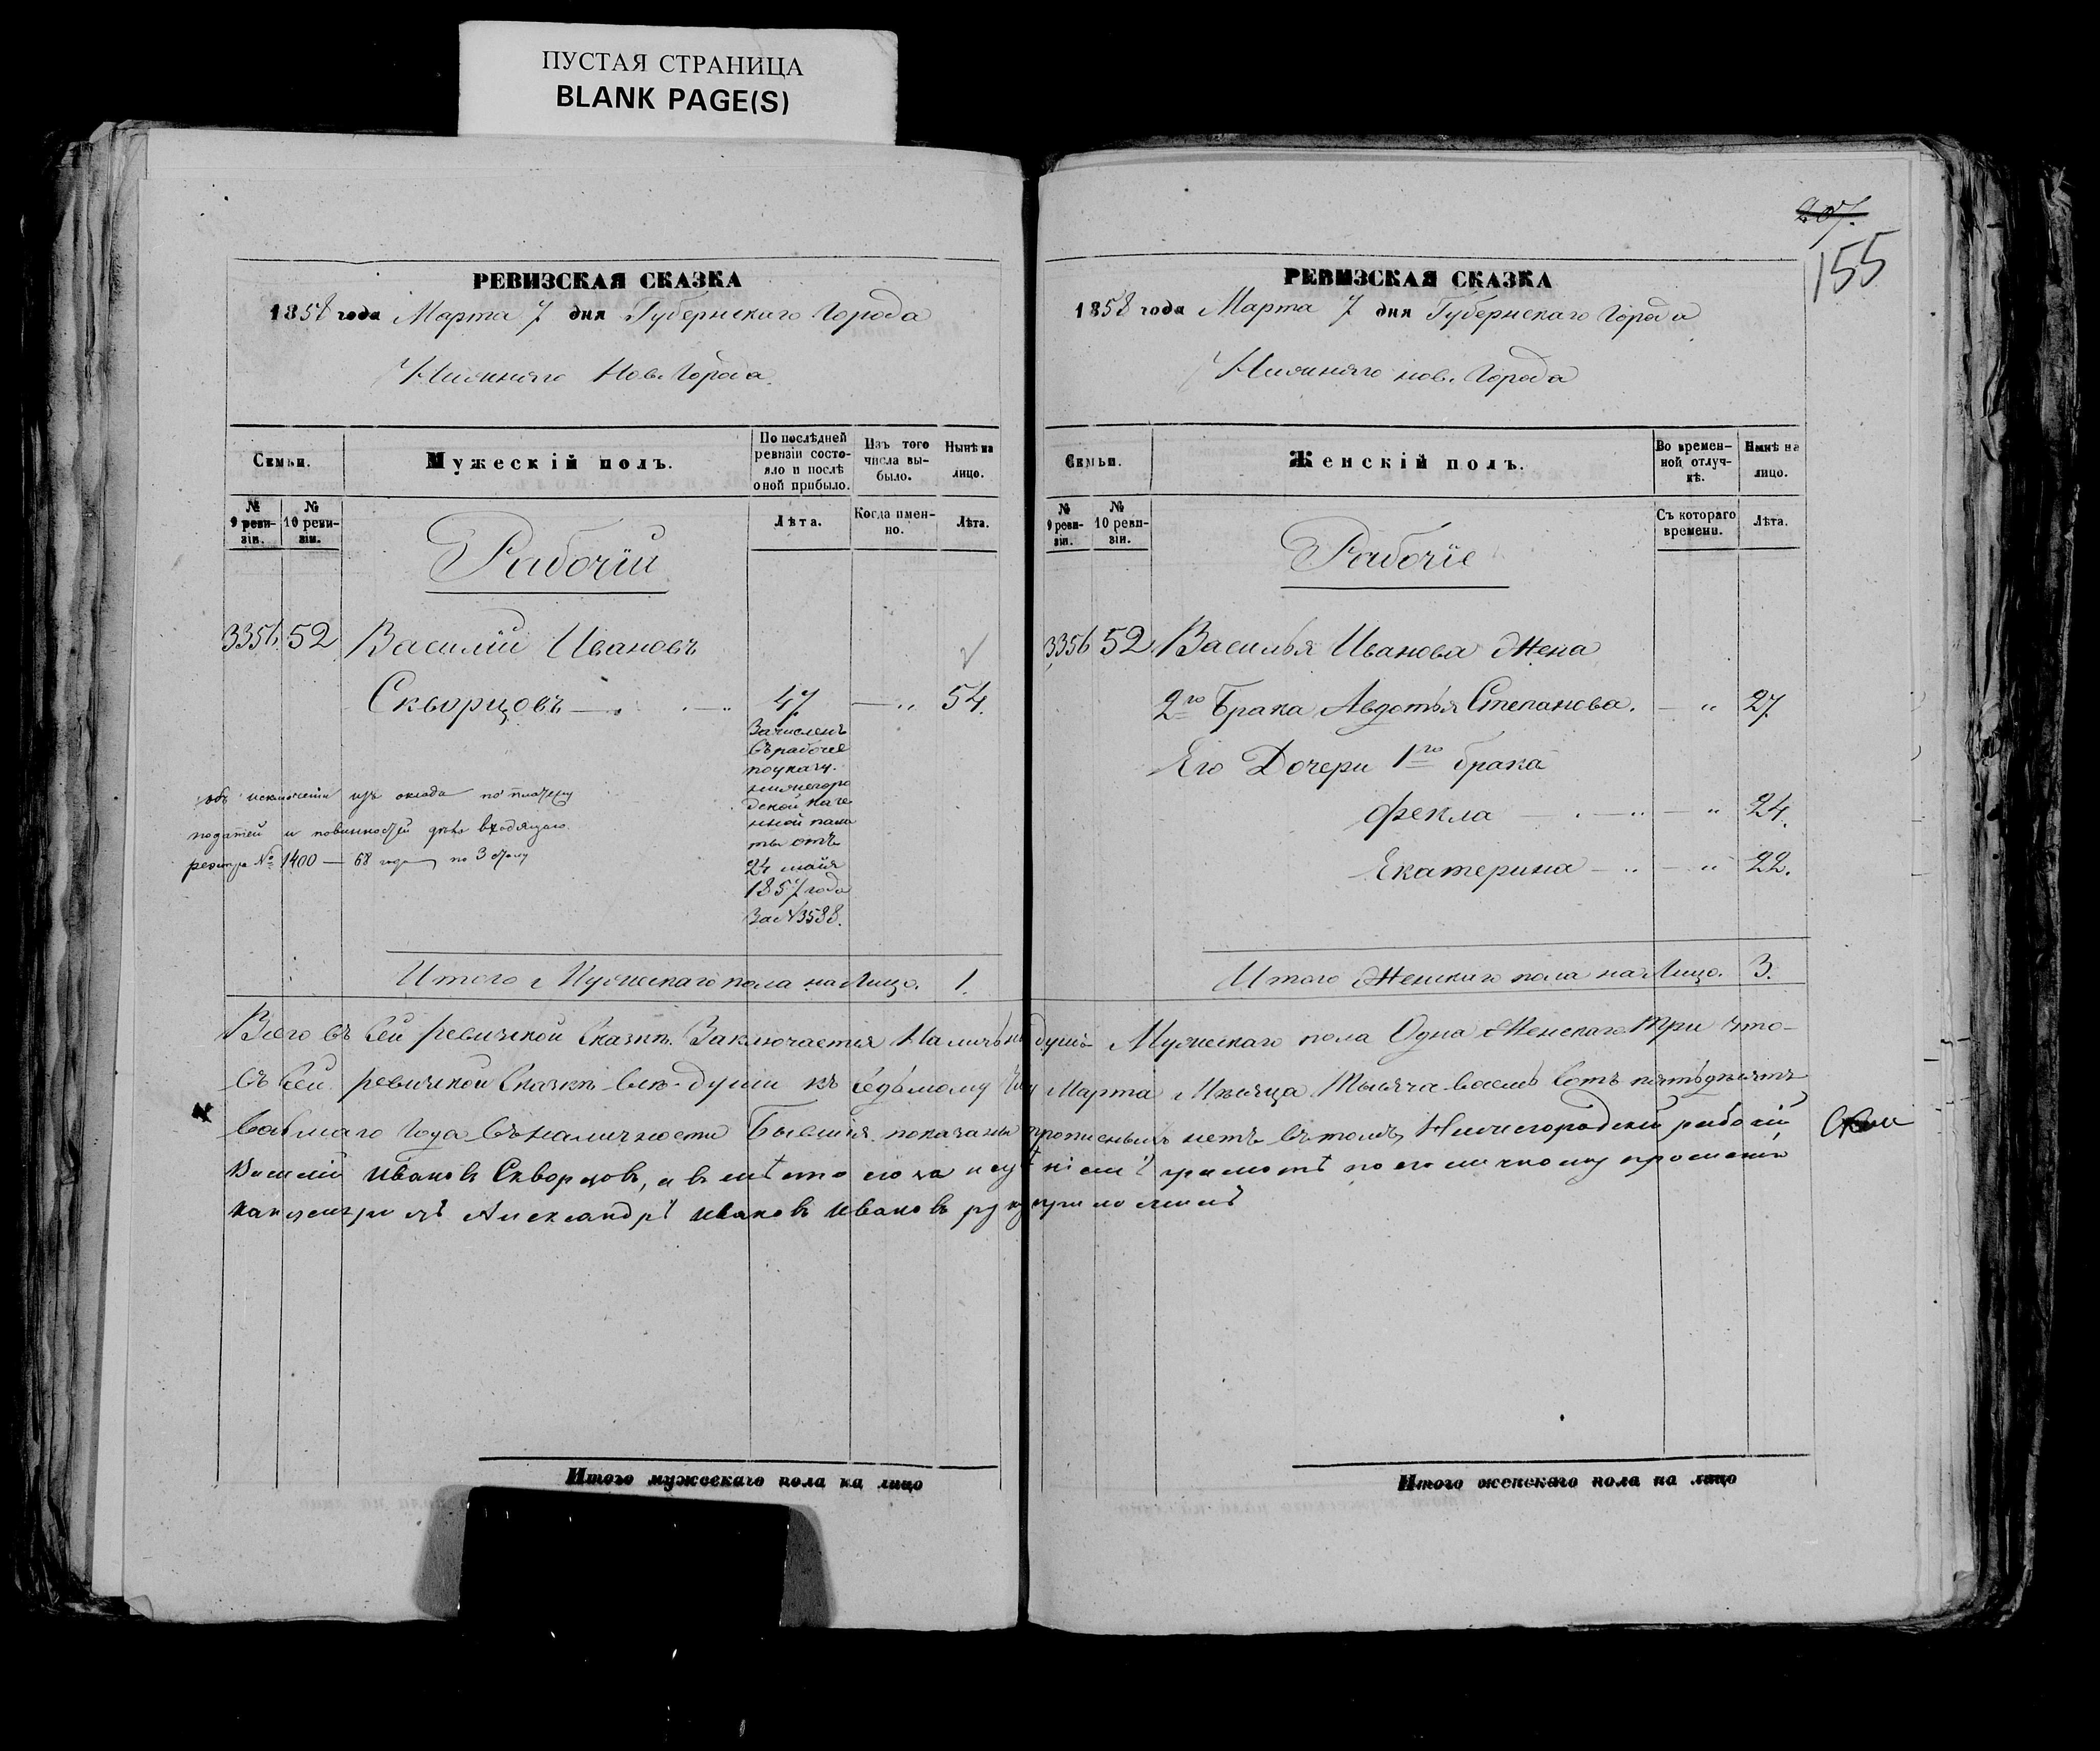 ПУСТАЯ СТРАНИЦА
BLANK PAGE(S)
РЕВИЗСКАЯ СКАЗКА
1858 года Марта 7 дня Губернскаго Города
Нижняго Нов. Города.
Семьи.
Мужескій полъ.
По послѣдней ревизіи состояло и послѣ оной прибыло.
Изъ того числа выбыло.
Нынѣ на лицо.
№ 9 ревизіи.
№ 10 ревизіи.
Лѣта.
Когда именно.
Лѣта.
Рабочіи
3356 52 Василий Ивановъ
Скворцовъ 47 — „ 54.
Зачисленъ
въ рабочіе
по указу.
нижегоро
дской казе
нной пала
ты отъ
24 майя
1857 года
За № 3588.
объ исключении изъ оклада по платежу
податей и повинностей
реэстра № 1400 — 68 года по 3 столу
Итого Мужескаго пола на Лицо. 1.
207.
155
РЕВИЗСКАЯ СКАЗКА
1858 года Марта 7 дня Губернскаго Города
Нижняго нов. Города
Семьи.
Женскій полъ.
Во временной отлучкѣ.
Нынѣ на лицо.
№ 9 ревизіи.
№ 10 ревизіи.
Съ котораго времени.
Лѣта.
Рабочіе
3356 52 Василья Иванова Жена
2го Брака Авдотья Степанова. — „ 27
Его Дочери 1го брака
Фекла — „ 24.
Екатерина — „ 22.
Итого Женскаго пола на Лицо. 3.
Всего въ Сей ревизской Сказкѣ Заключается Налич­ныхъ душъ Мужескаго пола Одна Женскаго Три что
въ Сей ревизской Сказкѣ все души къ Седьмому Марта Мѣсяца Тысяча восемь Сотъ пятьдесятъ
Восьмаго Года въ наличности Бывшія показаны прописныхъ нетъ въ томъ Нижегородскій рабочій
Василій Ивановъ Скворцовъ, а вмѣсто его за неумѣніемъ грамотѣ по его личному прошенію
Александръ Ивановъ Ивановъ руку приложилъ
Итого мужескаго пола на лицо
Итого женскаго пола на лицо